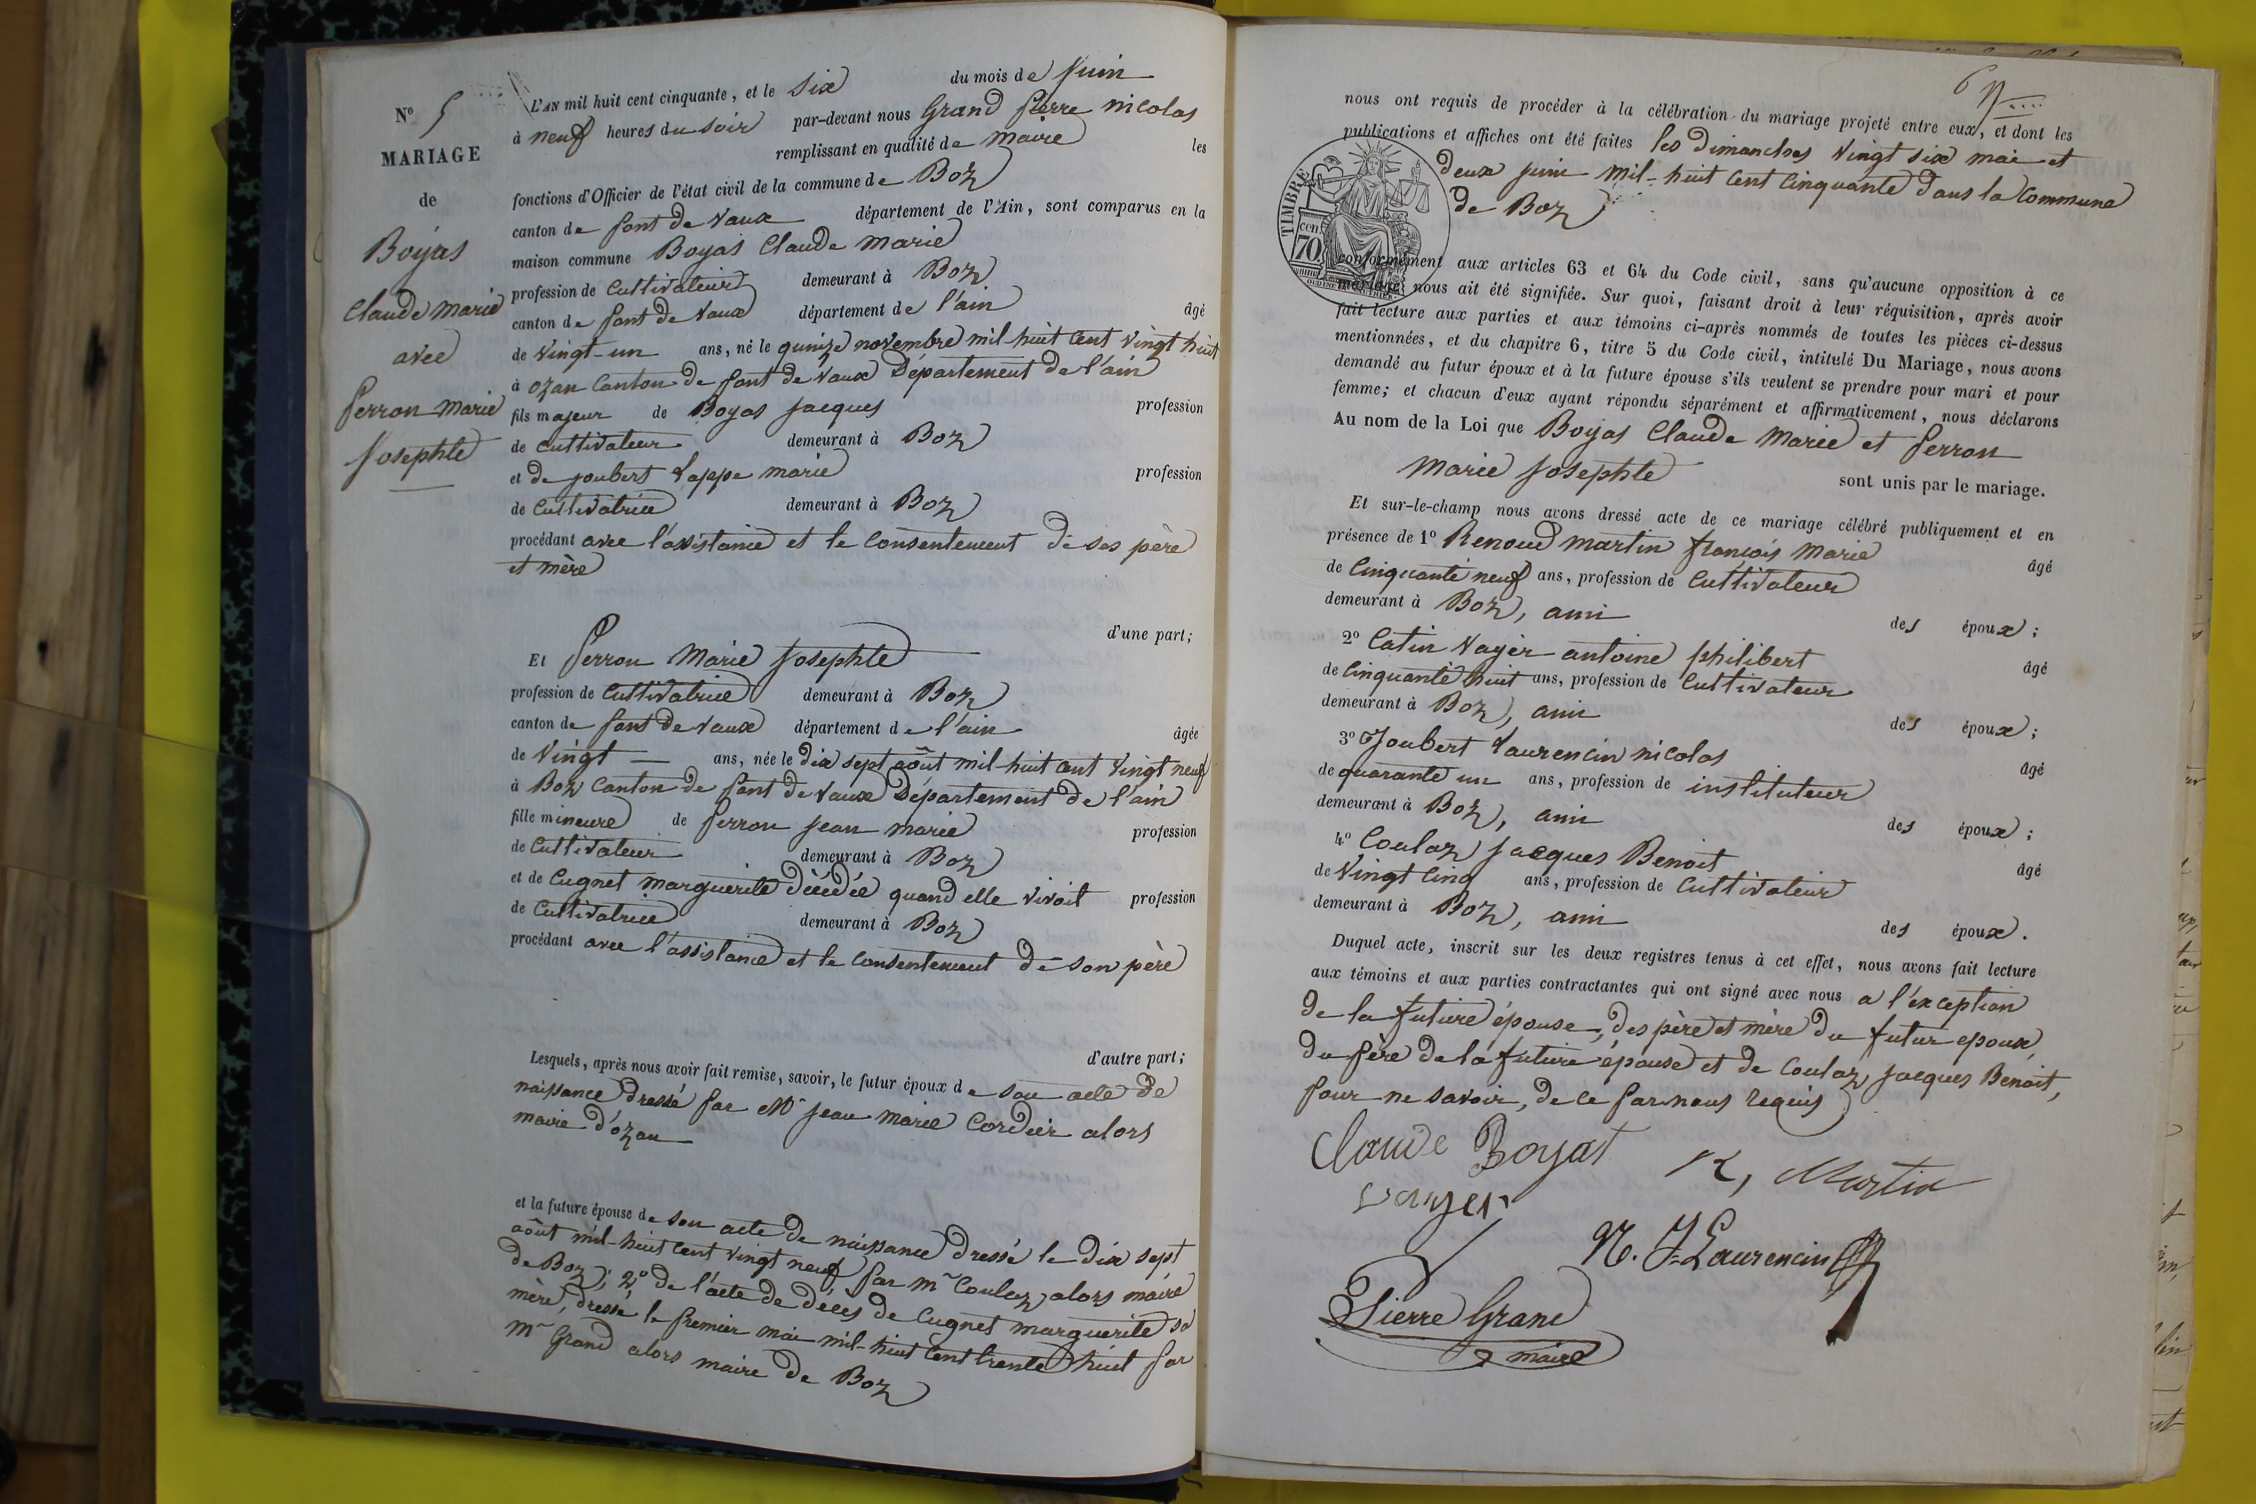 N° 5
MARIAGE
de
Boyas
Claude Marie
avec
Perron Marie
Josephte
L'AN mil huit cent cinquante, et le six du mois de Juin
à neuf heures du soir par-devant nous Grand Pierre nicolas
remplissant en qualité de maire les
fonctions d'Officier de l'état civil de la commune de Boz
canton de pont de vaux département de l'Ain, sont comparus en la
maison commune Boyas Claude Marie
profession de Cultivateur demeurant à Boz
canton de pont de vaux département de l'ain âgé
de vingt-un ans, né le quinze novembre mil-huit cent vingt huit
à ozan Canton de pont de vaux Département de l'ain
fils majeur de Boyas Jacques profession
de cultivateur demeurant à Boz
et de joubert Pappe marie profession
de Cultivatrice demeurant à Boz
procédant avec l'assistance et le consentement de ses père
et mère
d'une part;
Et Perron Marie Josephte
profession de Cultivatrice demeurant à Boz
canton de pont de vaux département de l'ain âgée
de Vingt ans, née le dix sept août mil-huit cent vingt neuf
à Boz Canton de pont de vaux Département de l'ain
fille mineure de perron jean marie profession
de Cultivateur demeurant à Boz
et de Cugnet marguerite Décédée quand elle vivoit profession
de Cultivatrice demeurant à Boz
procédant avec l'assistance et le consentement de son père
d'autre part;
Lesquels, après nous avoir fait remise, savoir, le futur époux de son acte de
naissance dressé par Mr jean marie Cordier alors
maire d'ozan
et la future épouse de son acte de naissance dressé le dix sept
août mil-huit cent vingt neuf par mr Coulaz alors maire
de Boz; 2° de l'acte de décès de Cugnet marguerite sa
mère, dressé le premier mai mil-huit cent trente huit par
Mr Grand alors maire de Boz
nous ont requis de procéder à la célébration du mariage projeté entre eux, et dont les
publications et affiches ont été faites les Dimanches vingt six mai et
deux juin mil-huit cent cinquante dans la Commune
de Boz
TIMBRE
70
cen
conformément aux articles 63 et 64 du Code civil, sans qu'aucune opposition à ce
mariage nous ait été signifiée. Sur quoi, faisant droit à leur réquisition, après avoir
fait lecture aux parties et aux témoins ci-après nommés de toutes les pièces ci-dessus
mentionnées, et du chapitre 6, titre 5 du Code civil, intitulé Du Mariage, nous avons
demandé au futur époux et à la future épouse s'ils veulent se prendre pour mari et pour
femme; et chacun d'eux ayant répondu séparément et affirmativement, nous déclarons
Au nom de la Loi que Boyas Claude Marie et Perron
Marie Josephte sont unis par le mariage.
Et sur-le-champ nous avons dressé acte de ce mariage célébré publiquement et en
présence de 1° Renoud martin françois Marie âgé
de Cinquante neuf ans, profession de Cultivateur
demeurant à Boz, ami des époux;
2° Catin Vayer antoine philibert âgé
de Cinquante huit ans, profession de Cultivateur
demeurant à Boz, ami des époux;
3° Joubert Laurencin nicolas âgé
de quarante un ans, profession de instituteur
demeurant à Boz, ami des époux;
4° Coulaz Jacques Benoit âgé
de Vingt Cinq ans, profession de Cultivateur
demeurant à Boz, ami des époux.
Duquel acte, inscrit sur les deux registres tenus à cet effet, nous avons fait lecture
aux témoins et aux parties contractantes qui ont signé avec nous a l'exception
de la future épouse, des père et mère du futur epoux,
du père de la future épouse et de Coulaz Jacques Benoit,
pour ne savoir, de ce par-nous requis
Claude Boyat
R, Martin
vayer
N. J-Laurencin
Pierre Grand
maire